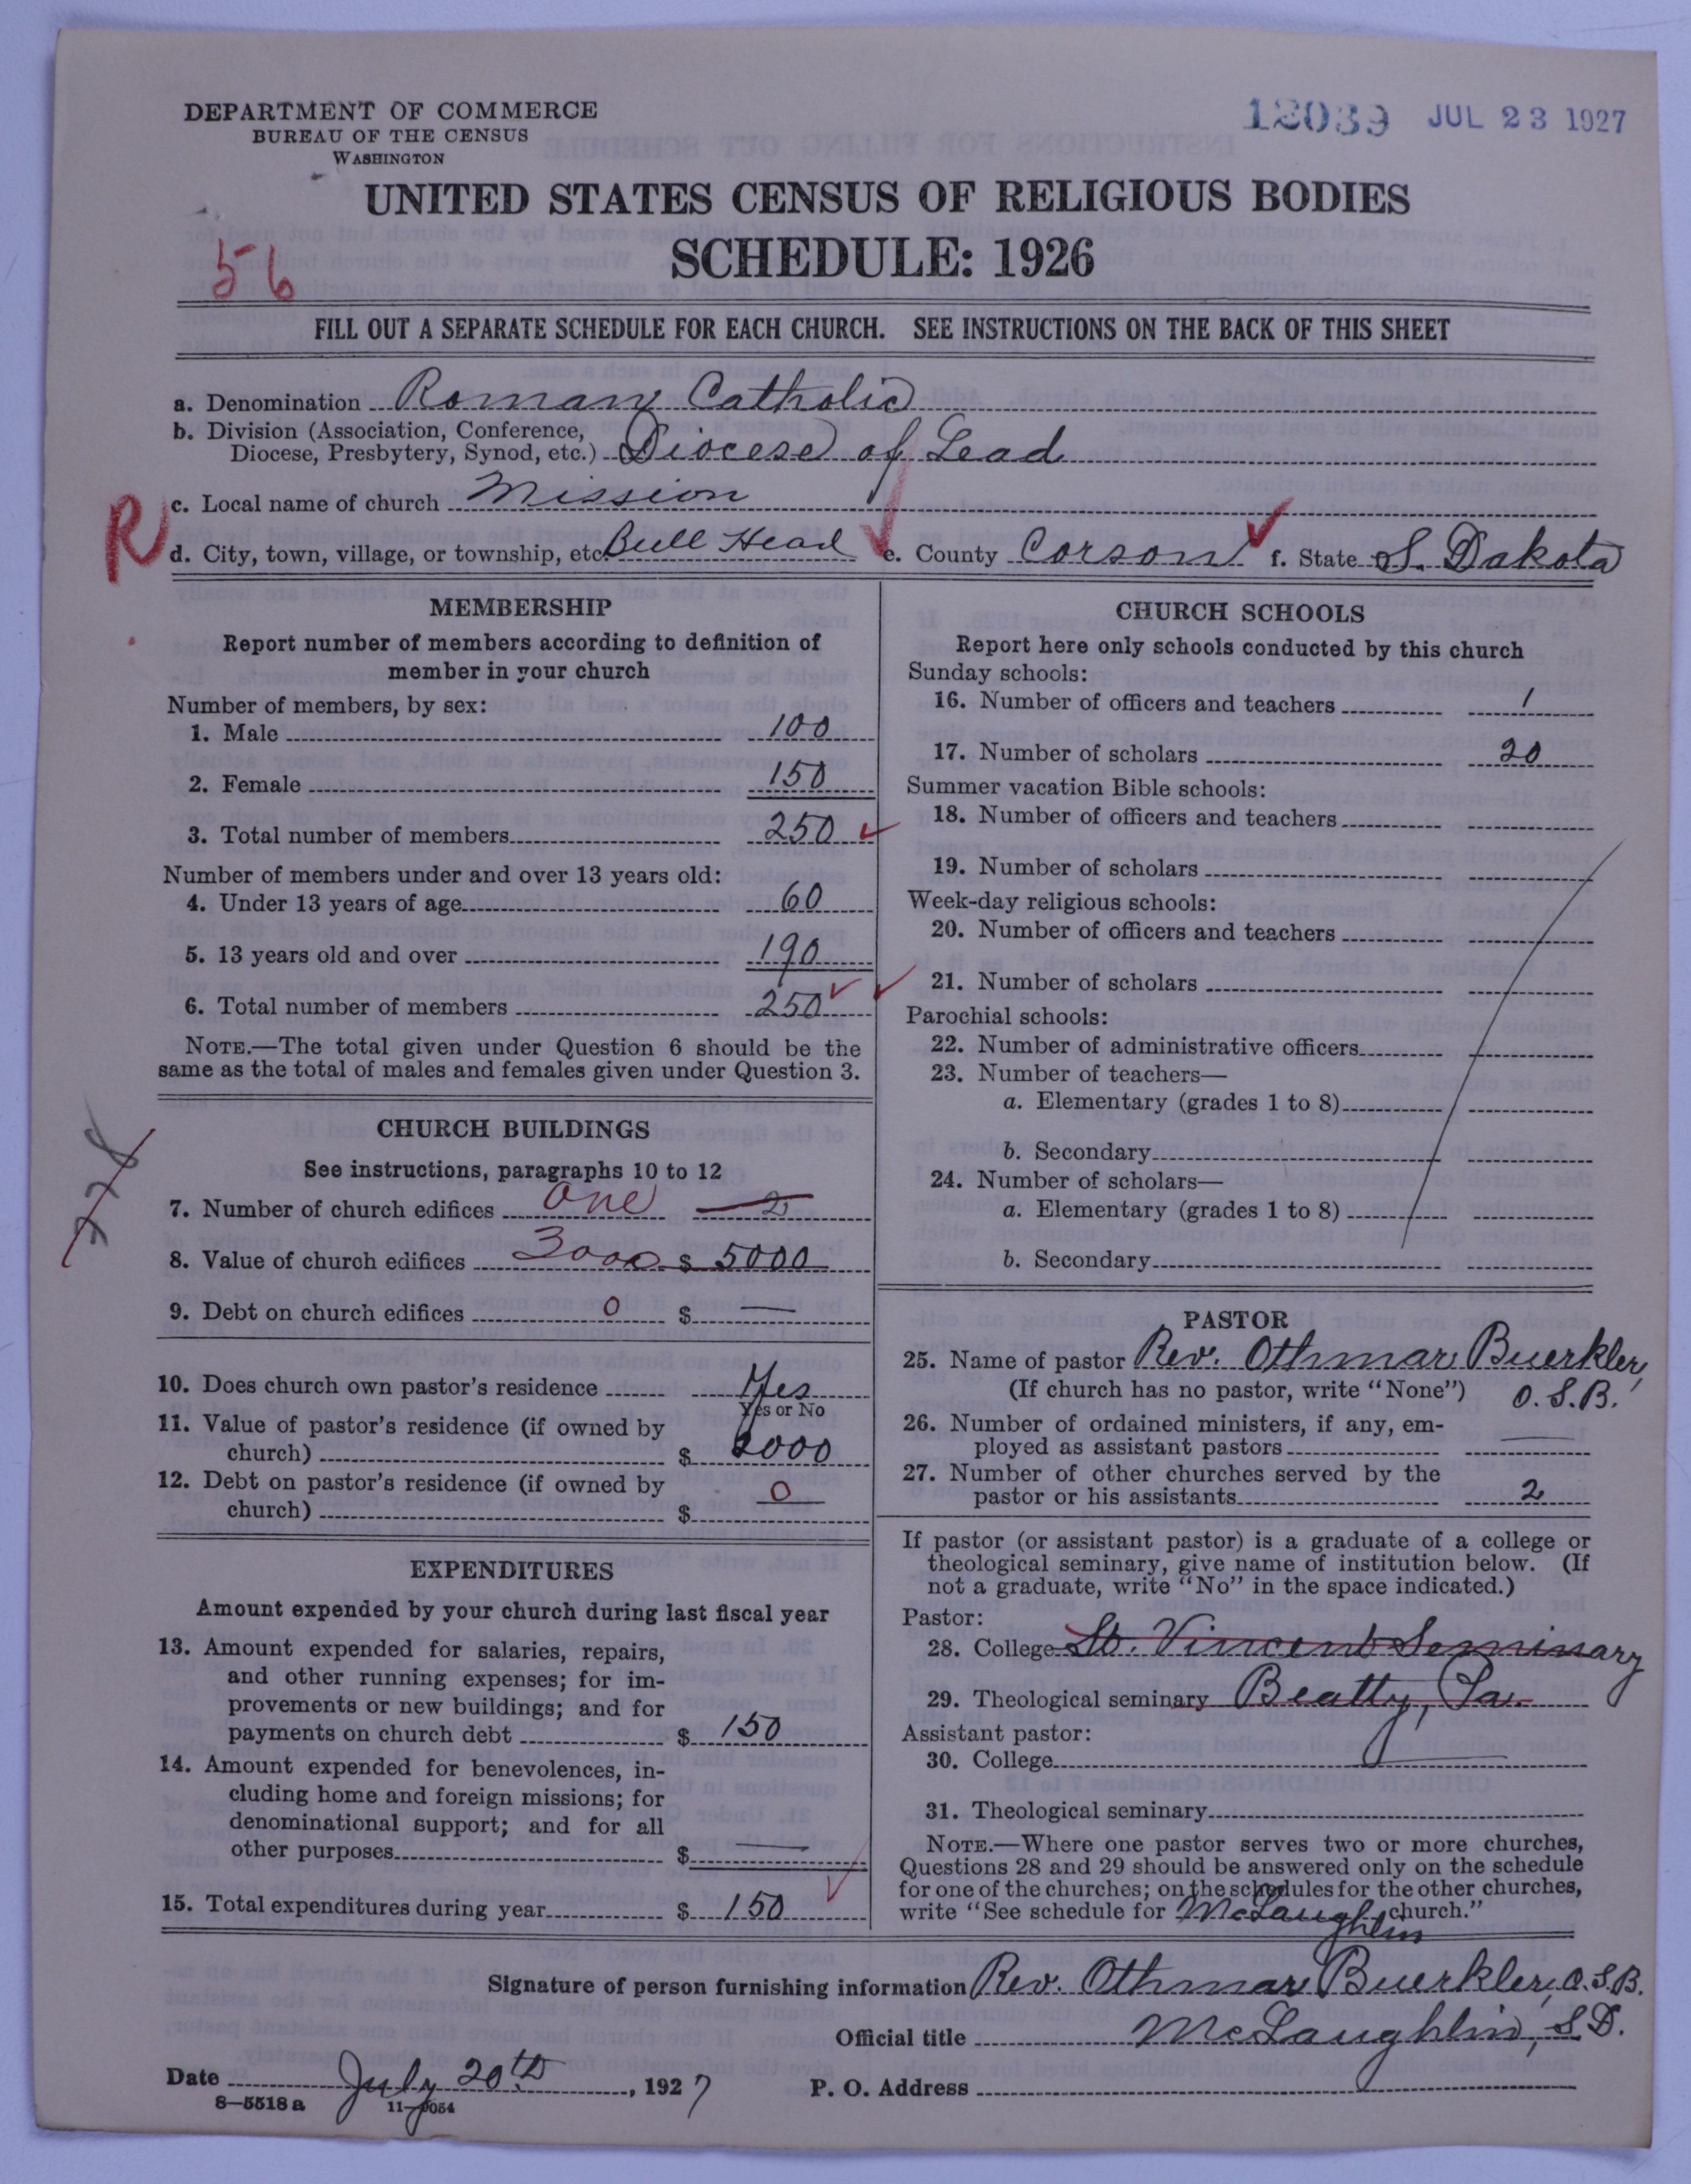 DEPARTMENT OF COMMERCE
BUREAU OF THE CENSUS
WASHINGTON
12039 JUL 23 1927
UNITED STATES CENSUS OF RELIGIOUS BODIES
SCHEDULE: 1926
56
FILL OUT A SEPARATE SCHEDULE FOR EACH CHURCH. SEE INSTRUCTIONS ON THE BACK OF THIS SHEET
a. Denomination Roman Catholic
b. Division (Association, Conference,
Diocese, Presbytery, Synod, etc.) Diocese of Lead
c. Local name of church Mission
R
d. City, town, village, or township, etc. Bull Head e. County Corson f. State S. Dakota
MEMBERSHIP
Report number of members according to definition of
member in your church
Number of members, by sex:
1. Male 100
2. Female 150
3. Total number of members 250
Number of members under and over 13 years old:
4. Under 13 years of age 60
5. 13 years old and over 190
6. Total number of members 250
NOTE.—The total given under Question 6 should be the
same as the total of males and females given under Question 3.
CHURCH BUILDINGS
See instructions, paragraphs 10 to 12
7. Number of church edifices one 2
8. Value of church edifices 3000 $ 5000
9. Debt on church edifices 0 $ —
10. Does church own pastor's residence Yes
Yes or No
11. Value of pastor's residence (if owned by
church) $ 2000
12. Debt on pastor's residence (if owned by
church) $ 0
EXPENDITURES
Amount expended by your church during last fiscal year
13. Amount expended for salaries, repairs,
and other running expenses; for im-
provements or new buildings; and for
payments on church debt $ 150
14. Amount expended for benevolences, in-
cluding home and foreign missions; for
denominational support; and for all
other purposes $ —
15. Total expenditures during year $ 150
CHURCH SCHOOLS
Report here only schools conducted by this church
Sunday schools:
16. Number of officers and teachers 1
17. Number of scholars 20
Summer vacation Bible schools:
18. Number of officers and teachers
19. Number of scholars
Week-day religious schools:
20. Number of officers and teachers
21. Number of scholars
Parochial schools:
22. Number of administrative officers
23. Number of teachers—
a. Elementary (grades 1 to 8)
b. Secondary
24. Number of scholars—
a. Elementary (grades 1 to 8)
b. Secondary
PASTOR
25. Name of pastor Rev. Othmar Buerkler,
(If church has no pastor, write "None") O.S.B.
26. Number of ordained ministers, if any, em-
ployed as assistant pastors —
27. Number of other churches served by the
pastor or his assistants 2
If pastor (or assistant pastor) is a graduate of a college or
theological seminary, give name of institution below. (If
not a graduate, write "No" in the space indicated.)
Pastor:
28. College St. Vincent Seminary
29. Theological seminary Beatty, Pa.
Assistant pastor:
30. College
31. Theological seminary
NOTE.—Where one pastor serves two or more churches,
Questions 28 and 29 should be answered only on the schedule
for one of the churches; on the schedules for the other churches,
write "See schedule for McLaughlin church."
Signature of person furnishing information Rev. Othmar Buerkler, O.S.B.
Official title McLaughlin, S.D.
Date July 20th, 1927 P. O. Address
8—5518 a 11—9054